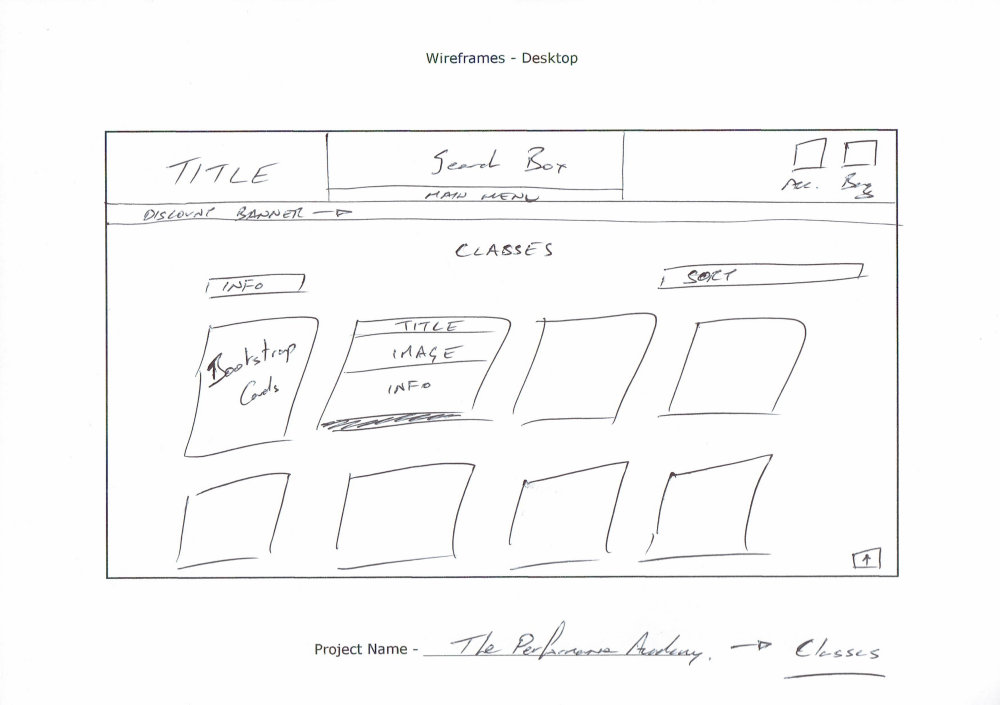 Wireframes - Desktop
TITLE
Search Box
Acc.
Bag
MAIN MENU
DISCOUNT BANNER
CLASSES
INFO
SORT
Bootstrap
Cards
TITLE
IMAGE
INFO
Project Name - The Performance Academy. Classes